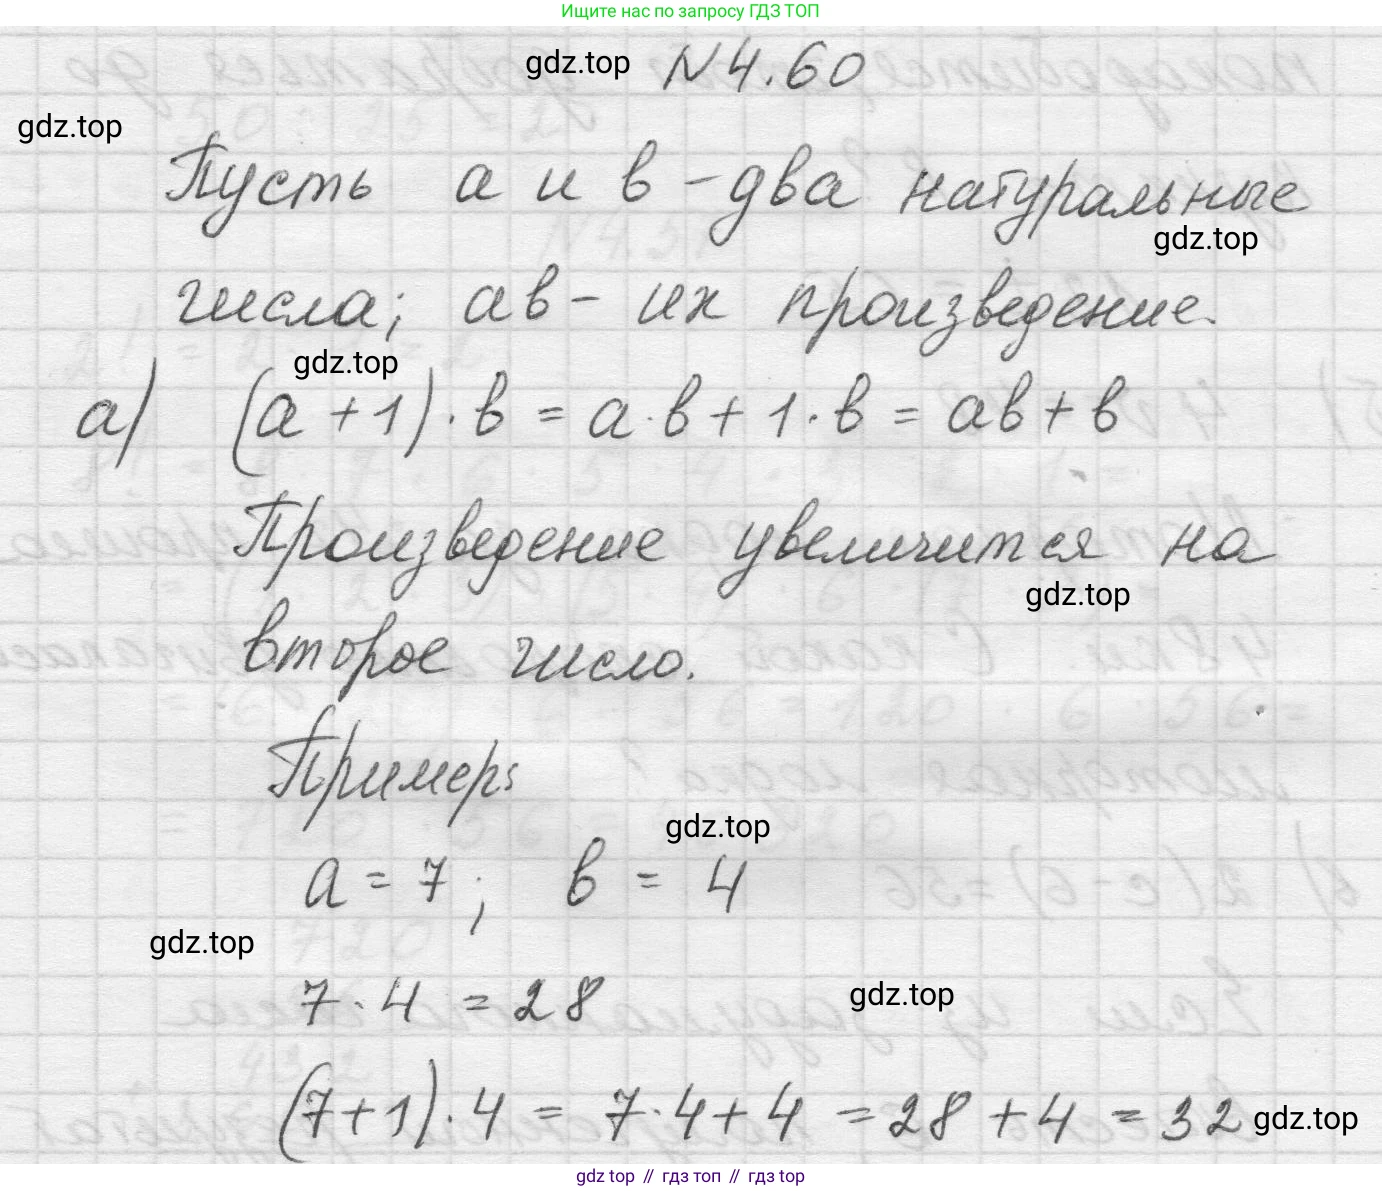 Ищите нас по запросу ГДЗ ТОП
gdz.top N4.60
gdz.top
Пусть a и b - два натуральные
gdz.top
числа; ab - их произведение.
gdz.top
а) (a + 1) · b = a · b + 1 · b = ab + b
Произведение увеличится на
gdz.top
второе число.
Пример:
gdz.top
a = 7; b = 4
gdz.top
7 · 4 = 28
gdz.top
(7 + 1) · 4 = 7 · 4 + 4 = 28 + 4 = 32 gdz.top
gdz top // гдз топ // gdz top